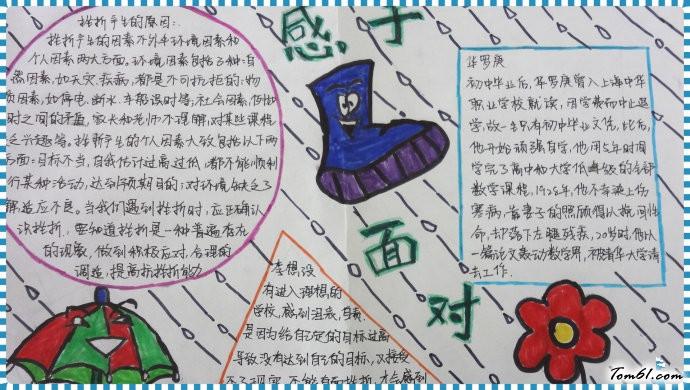 感于
面对
挫折产生的原因:
挫折产生的因素不外乎环境因素和
个人因素两大方面。环境因素包括了种自
然因素,如天灾、疾病,都是不可抗拒的;物
质因素,如停电、断水、车船误时等;社会因素,
时之间的矛盾,家长和老师不理解,对某些课程
乏兴趣等。挫折产生的个人因素大致包括以下两
方面:目标不当,自我估计过高过低,都不能顺利
行某种活动,达到预期目的;对环境缺乏了
解适应不良。当我们遇到挫折时,应正确认
识挫折,要知道挫折是一种普遍存在
的现象,做到积极应对,合理的
调适,提高抗挫折能力
华罗庚
初中毕业后,华罗庚曾入上海中华
职业学校就读,因学费而中途退
学,故一生只有初中毕业文凭。此后,
他开始顽强自学,他用5年时间
学完了高中和大学低年级的全部
数学课程。1928年,他不幸染上伤
寒病,靠妻子的照顾得以挽回性
命,却落下左腿残疾。20岁时,他以
一篇论文轰动数学界,被清华大学请
去工作.
李想没
有进入理想的
学校,感到沮丧,自卑.
是因为给自己定的目标过高
导致没有达到自己的目标,又接受
不了现实,不能有面挫折,才会感到
Tom61.com